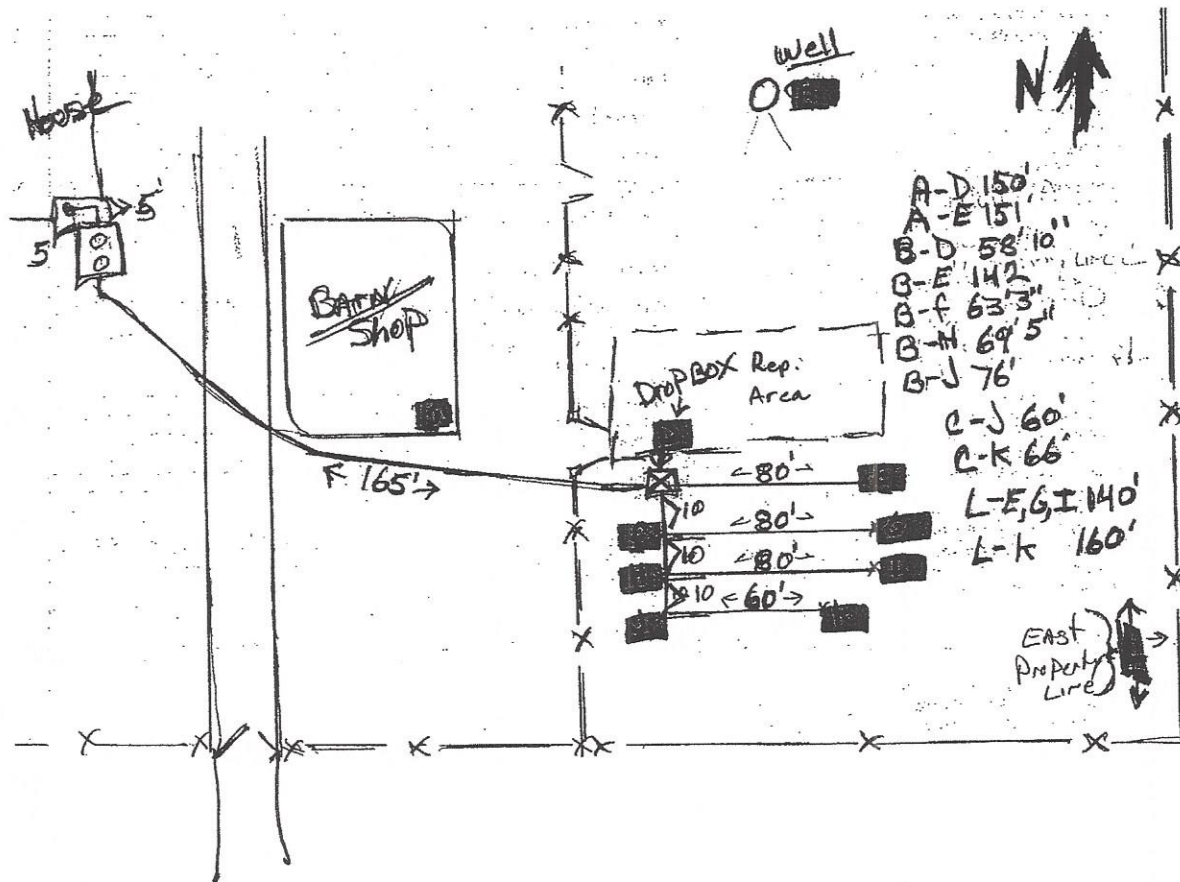 Well
N
House
5'
5
A-D 150'
A-E 151'
B-D 58'10"
B-E 142
B-F 63'3"
B-H 69'5"
B-J 76'
C-J 60'
C-K 66'
L-E,G,I 140'
L-K 160'
BARN
Shop
DropBOX Rep.
Area
165'
80'
10
80'
10
80'
10
60'
EAST
Property
Line